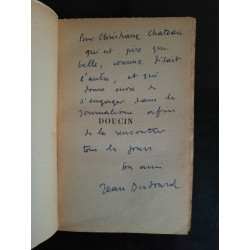 Pour Christiane Chateau
qui est pire que
belle, comme disait
l'autre, et qui
donne envie de
s'engager dans le
journalisme afin
DOUCIN
de la rencontrer
tous les jours
son ami
Jean Dutourd